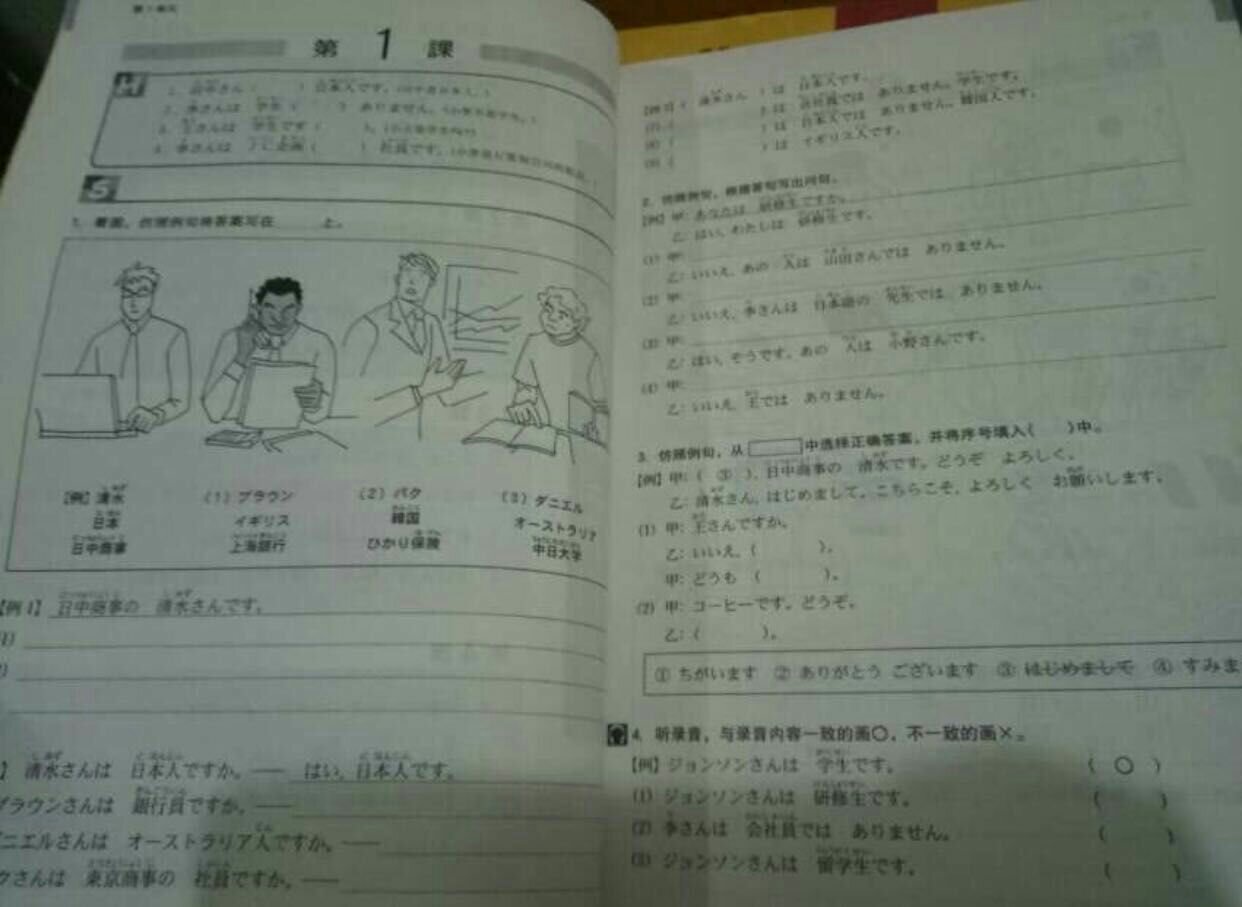 第1課
M
1. 田中さん（　　）日本人です。
2. 李さんは 学生（　　）ありません。
3. 王さんは 学生です（　　）。
4. 李さんは JC企画（　　）社員です。
S
1. 看图，仿照例句将答案写在＿＿＿上。
【例】清水 （1）ブラウン （2）パク （3）ダニエル
日本 イギリス 韓国 オーストラリア
日中商事 上海銀行 ひかり保険 中日大学
【例1】日中商事の 清水さんです。
清水さんは 日本人ですか。── はい，日本人です。
ブラウンさんは 銀行員ですか。──
ダニエルさんは オーストラリア人ですか。──
クさんは 東京商事の 社員ですか。──
清水さん ）は 日本人です。
）は 会社員では ありません。学生です。
）は 日本人では ありません。韓国人です。
）は イギリス人です。
2. 仿照例句，根据答句写出问句。
【例】甲：あなたは 研修生ですか。
乙：はい，わたしは 研修生です。
(1) 甲：
乙：いいえ，あの 人は 山田さんでは ありません。
(2) 甲：
乙：いいえ，李さんは 日本語の 先生では ありません。
(3) 甲：
乙：はい，そうです。あの 人は 小野さんです。
(4) 甲：
乙：いいえ，王では ありません。
3. 仿照例句，从 中选择正确答案，并将序号填入（　）中。
【例】甲：（ ③ ），日中商事の 清水です。どうぞ よろしく。
乙：清水さん，はじめまして。こちらこそ，よろしく お願いします。
(1) 甲：王さんですか。
乙：いいえ，（　　）。
甲：どうも（　　）。
(2) 甲：コーヒーです。どうぞ。
乙：（　　）。
① ちがいます ② ありがとう ございます ③ はじめまして ④ すみま
4. 听录音，与录音内容一致的画○，不一致的画×。
【例】ジョンソンさんは 学生です。（ ○ ）
(1) ジョンソンさんは 研修生です。（　　）
(2) 李さんは 会社員では ありません。（　　）
(3) ジョンソンさんは 留学生です。（　　）